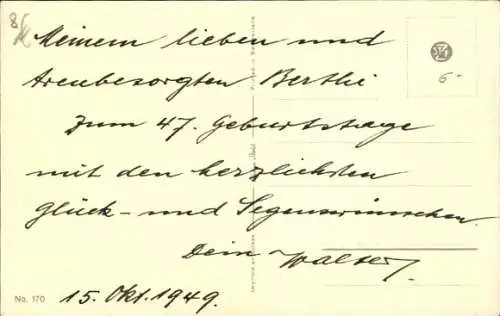 Meinem lieben und
treubesorgten Berthi
zum 47. Geburtstage
mit den herzlichsten
Glück- und Segenswünschen.
Dein Walter.
15. Okt. 1949.
No. 170